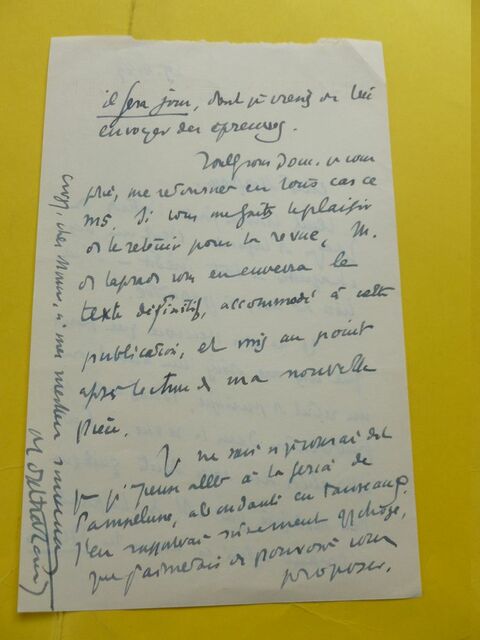 il fera jour, dont je viens de lui
envoyer des épreuves.
vous
prie, me retourner en tous cas ce
ms. Si vous me faites le plaisir
de le retenir pour la revue, M.
de Laprade vous en enverra le
texte définitif, accommodé à cette
publication, et mis au point
après lecture de ma nouvelle
pièce.
Je ne sais si je vous ai dit
que je pense aller à la feria de
Pampelune, abondante en taureaux.
J'en rapporterai sûrement qq chose,
que j'aimerais de pouvoir vous
proposer.
Croyez, cher Monsieur, à mes meilleurs souvenirs
Montherlant